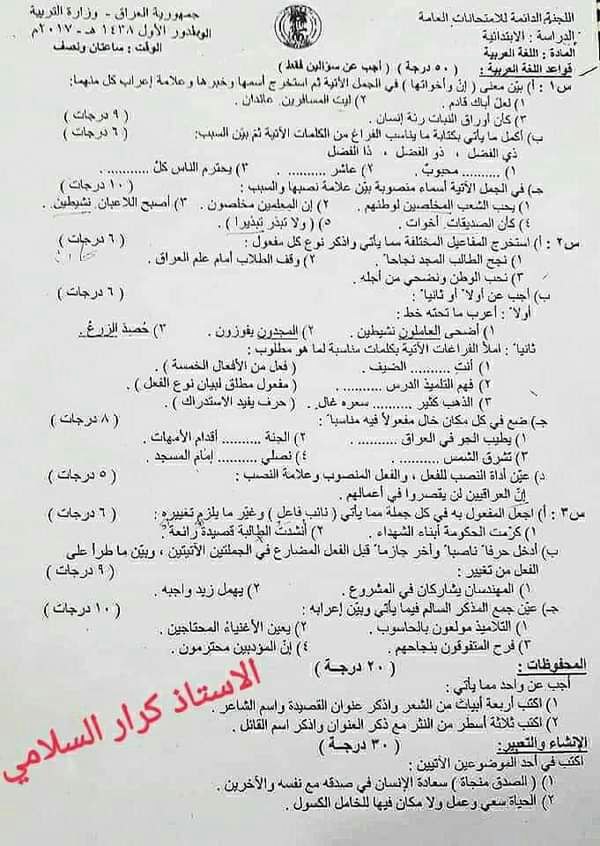 اللجنة الدائمة للامتحانات العامة
جمهورية العراق - وزارة التربية
الدراسة : الابتدائية
الدور الأول ١٤٣٨ هـ - ٢٠١٧م
المادة : اللغة العربية
الوقت : ساعتان ونصف
قواعد اللغة العربية : ( ٥٠ درجة ) ( أجب عن سؤالين فقط )
س١ : أ) بيّن معنى ( إنّ وأخواتها ) في الجمل الآتية ثم استخرج أسمها وخبرها وعلامة إعراب كل منهما:
١) لعلّ أباك قادم . ٢) ليت المسافرين عائدان .
٣) كأن أوراق النبات رئة إنسان . ( ٩ درجات )
ب) أكمل ما يأتي بكتابة ما يناسب الفراغ من الكلمات الآتية ثم بيّن السبب: ( ٦ درجات )
ذي الفضل ، ذو الفضل ، ذا الفضل
١) .......... محبوبٌ . ٢) عاشر .......... . ٣) يحترم الناس كلُّ .......... .
جـ) في الجمل الآتية أسماء منصوبة بيّن علامة نصبها والسبب: ( ١٠ درجات )
١) يحب الشعب المخلصين لوطنهم . ٢) إن المعلمين مخلصون . ٣) أصبح اللاعبان نشيطين .
٤) كأن الصديقات أخوات . ٥) ( ولا تبذر تبذيرا ) .
س٢ : أ) استخرج المفاعيل المختلفة مما يأتي واذكر نوع كل مفعول : ( ٦ درجات )
١) نجح الطالب المجد نجاحاً . ٢) وقف الطلاب أمام علم العراق .
٣) نحب الوطن ونضحي من أجله .
ب) أجب عن أولاً أو ثانياً : ( ٦ درجات )
أولاً : أعرب ما تحته خط :
١) أضحى العاملون نشيطين . ٢) المجدون يفوزون . ٣) حُصدَ الزرعُ .
ثانياً : املأ الفراغات الآتية بكلمات مناسبة لما هو مطلوب :
١) أنتِ .......... الضيف . ( فعل من الأفعال الخمسة )
٢) فهم التلميذ الدرس .......... ( مفعول مطلق لبيان نوع الفعل )
٣) الذهب كثير .......... سعره غال . ( حرف يفيد الاستدراك )
جـ) ضع في كل مكان خال مفعولاً فيه مناسباً : ( ٨ درجات )
١) يطيب الجو في العراق .......... . ٢) الجنة .......... أقدام الأمهات .
٣) تشرق الشمس .......... . ٤) نصلي .......... إمام المسجد .
د) عيّن أداة النصب للفعل ، والفعل المنصوب وعلامة النصب : ( ٥ درجات )
إنّ العراقيين لن يقصروا في أعمالهم .
س٣ : أ) اجعل المفعول به في كل جملة مما يأتي ( نائب فاعل ) وغيّر ما يلزم تغييره: ( ٦ درجات )
١) كرّمت الحكومة أبناء الشهداء . ٢) أنشدتْ الطالبة قصيدة رائعة:
ب) أدخل حرفاً ناصباً وآخر جازماً قبل الفعل المضارع في الجملتين الآتيتين ، وبيّن ما طرأ على
الفعل من تغيير : ( ٩ درجات )
١) المهندسان يشاركان في المشروع . ٢) يهمل زيد واجبه .
جـ) عيّن جمع المذكر السالم فيما يأتي وبيّن إعرابه : ( ١٠ درجات )
١) التلاميذ مولعون بالحاسوب . ٢) يعين الأغنياءُ المحتاجين .
٣) فرح المتفوقون بنجاحهم . ٤) إنّ المؤدبين محترمون .
المحفوظات : ( ٢٠ درجـة )
أجب عن واحد مما يأتي :
١) اكتب أربعة أبيات من الشعر واذكر عنوان القصيدة واسم الشاعر .
٢) اكتب ثلاثة أسطر من النثر مع ذكر العنوان واذكر اسم القائل .
الإنشاء والتعبير: ( ٣٠ درجـة )
اكتب في أحد الموضوعين الآتيين :
١) ( الصدق منجاة ) سعادة الإنسان في صدقه مع نفسه والآخرين .
٢) الحياة سعي وعمل ولا مكان فيها للخامل الكسول .
الاستاذ كرار السلامي